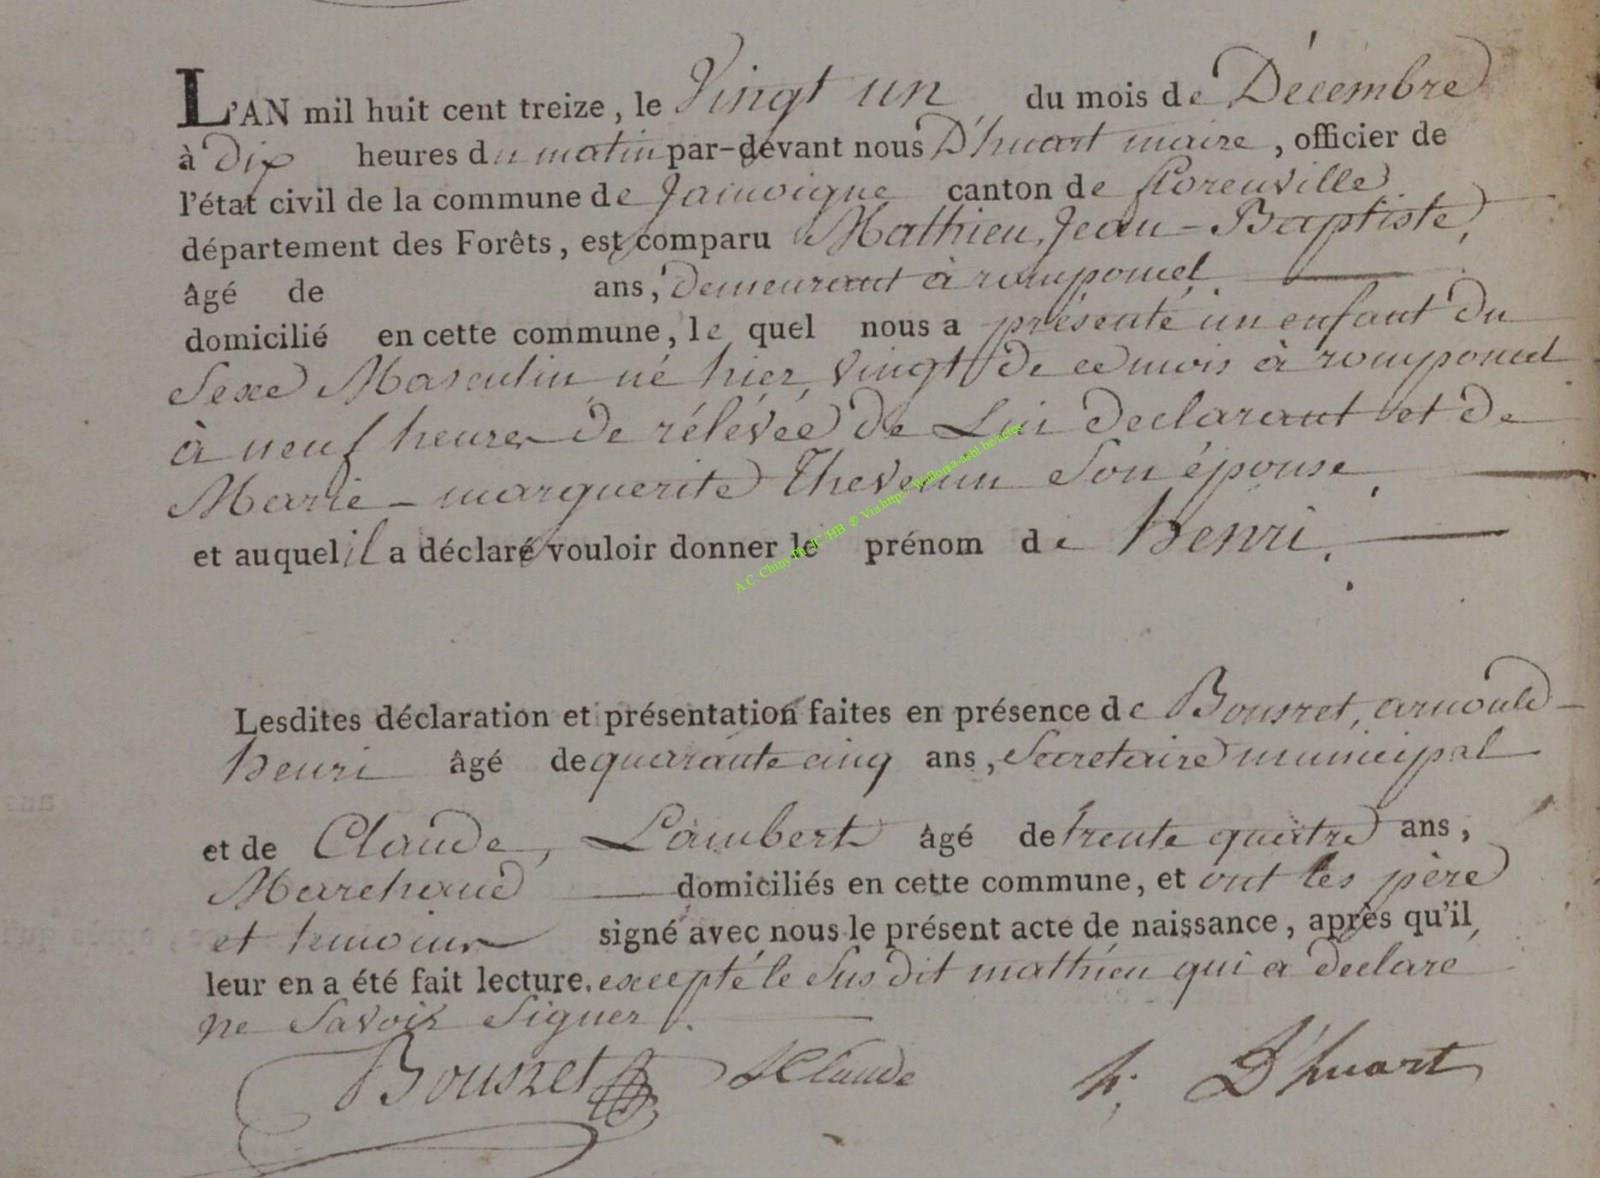 L'AN mil huit cent treize, le Vingt un du mois de Décembre
à dix heures du matin par-devant nous D'huart maire, officier de
l'état civil de la commune de Jamoigne canton de florenville
département des Forêts, est comparu Mathieu, Jean-Baptiste,
âgé de ans, demeurant à romponcel
domicilié en cette commune, le quel nous a présenté un enfant du
Sexe Masculin né hier, vingt de ce mois à romponcel
à neuf heures de rélévée de Lui declarant et de
Marie-marguerite Thevenin Son épouse,
et auquel il a déclaré vouloir donner le prénom de Henri.
Lesdites déclaration et présentation faites en présence de Bousret, arnould-
henri âgé de quarante cinq ans, Secretaire municipal
et de Claude, Lambert âgé de trente quatre ans,
Marchand domiciliés en cette commune, et ont les père
et temoins signé avec nous le présent acte de naissance, après qu'il
leur en a été fait lecture. excepté le Sus dit mathieu qui a declaré
ne Savoir Signer.
Bousret LClaude h. D'huart